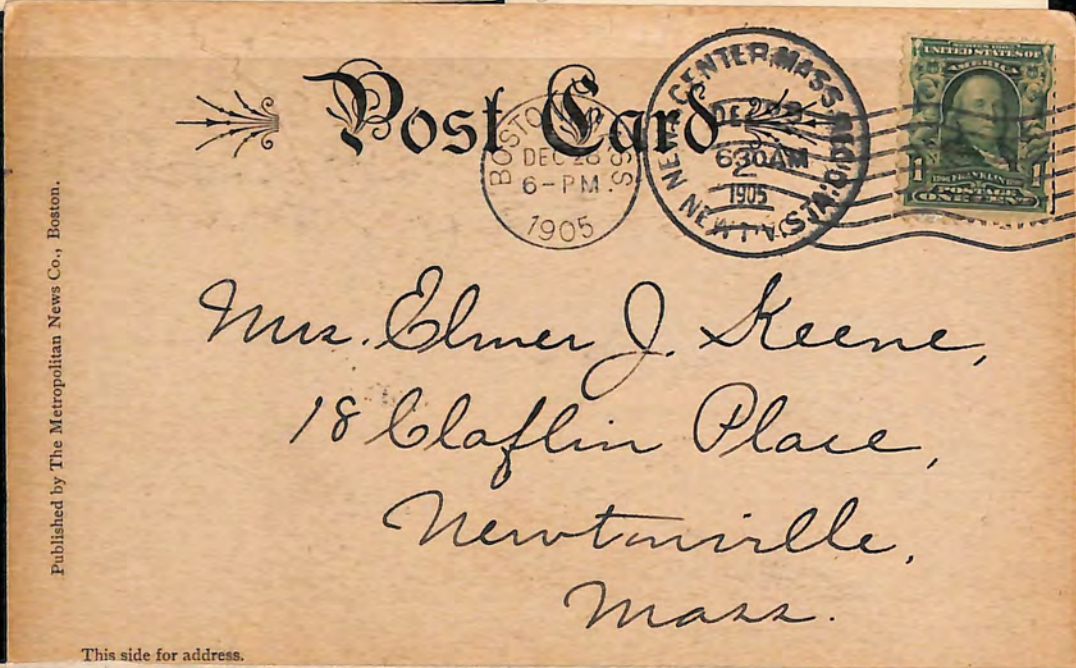 Post Card
BOSTON
DEC 28
6-PM.
1905
NEWT. CENTER, MASS.
630AM
1905
SERIES 1902
UNITED STATES OF
AMERICA
1 FRANKLIN 1
POSTAGE
ONE CENT
Mrs. Elmer J. Keene,
18 Claflin Place,
Newtonville,
Mass.
Published by The Metropolitan News Co., Boston.
This side for address.